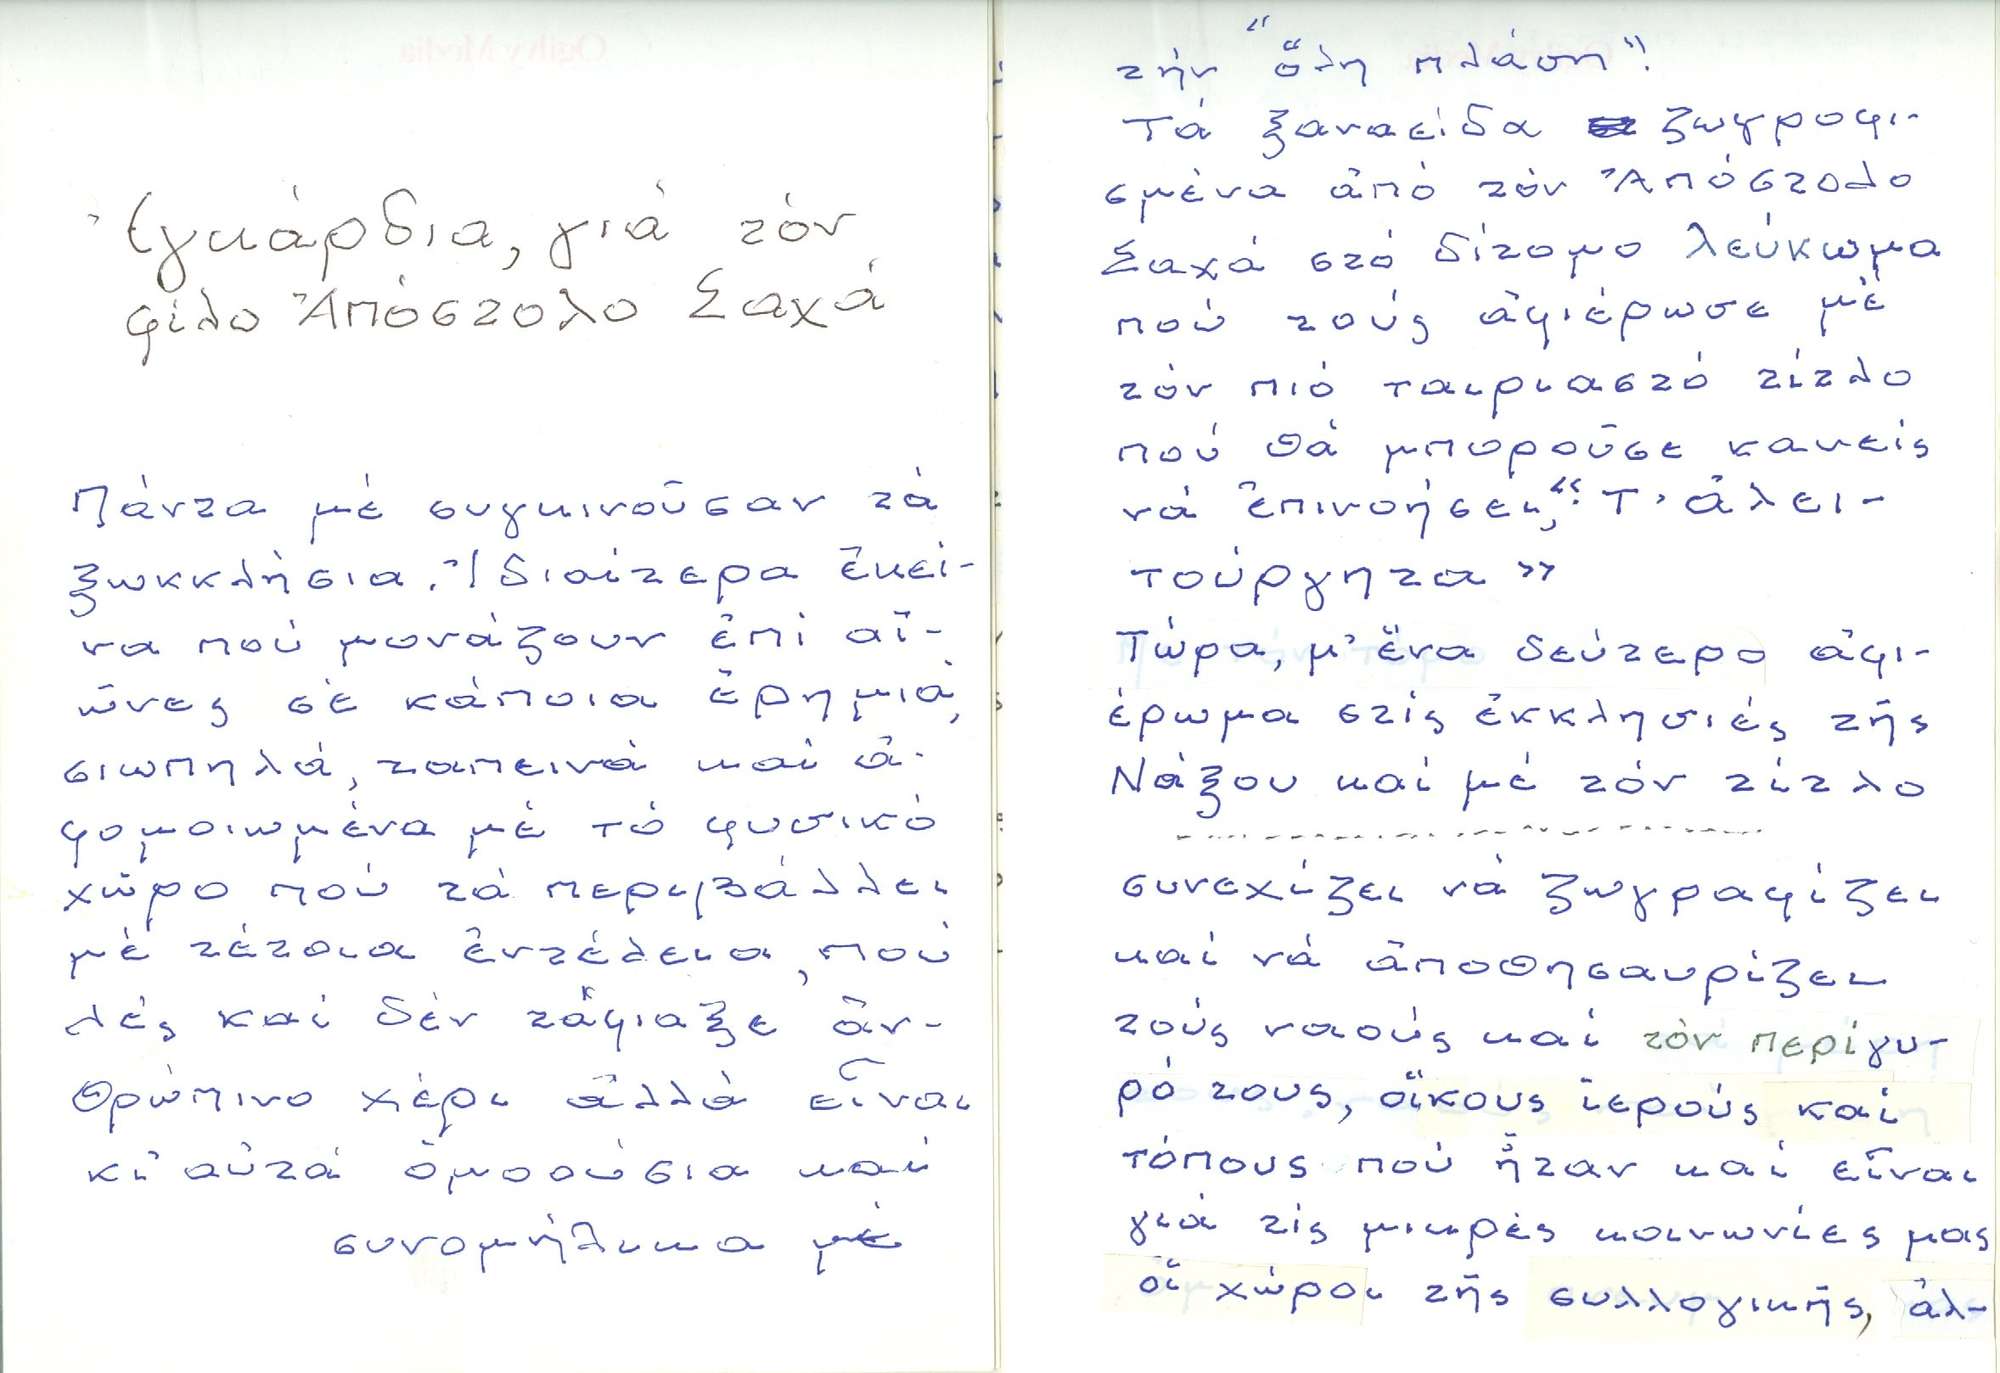 Ἐγκάρδια, γιά τόν
φίλο Ἀπόστολο Σαχά
Πάντα μέ συγκινοῦσαν τά
ξωκκλήσια. Ἰδιαίτερα ἐκεῖ-
να πού μονάζουν ἐπί αἰ-
ῶνες σέ κάποια ἐρημιά,
σιωπηλά, ταπεινά καί ἀ-
φομοιωμένα μέ τό φυσικό
χῶρο πού τά περιβάλλει
μέ τέτοια ἐντέλεια, πού
λές καί δέν τἄφιαξε ἀν-
θρώπινο χέρι ἀλλά εἶναι
κι᾿ αὐτά ὁμοούσια καί
συνομήλικα μέ
τήν "ὅλη πλάση"!
Τά ξαναείδα ζωγραφι-
σμένα ἀπό τόν Ἀπόστολο
Σαχά στό δίτομο λεύκωμα
πού τούς ἀφιέρωσε μέ
τόν πιό ταιριαστό τίτλο
πού θά μποροῦσε κανείς
νά ἐπινοήσει, "Τ' ἀλει-
τούργητα»
Τώρα, μ' ἕνα δεύτερο ἀφι-
έρωμα στίς ἐκκλησιές τῆς
Νάξου καί μέ τόν τίτλο
- - - - - - - - - - - - - - -
συνεχίζει νά ζωγραφίζει
καί νά ἀποθησαυρίζει
τούς ναούς καί τόν περίγυ-
ρό τους, οἴκους ἱερούς καί
τόπους πού ἦταν καί εἶναι
γιά τίς μικρές κοινωνίες μας
οἱ χώροι τῆς συλλογικῆς, ἀλ-